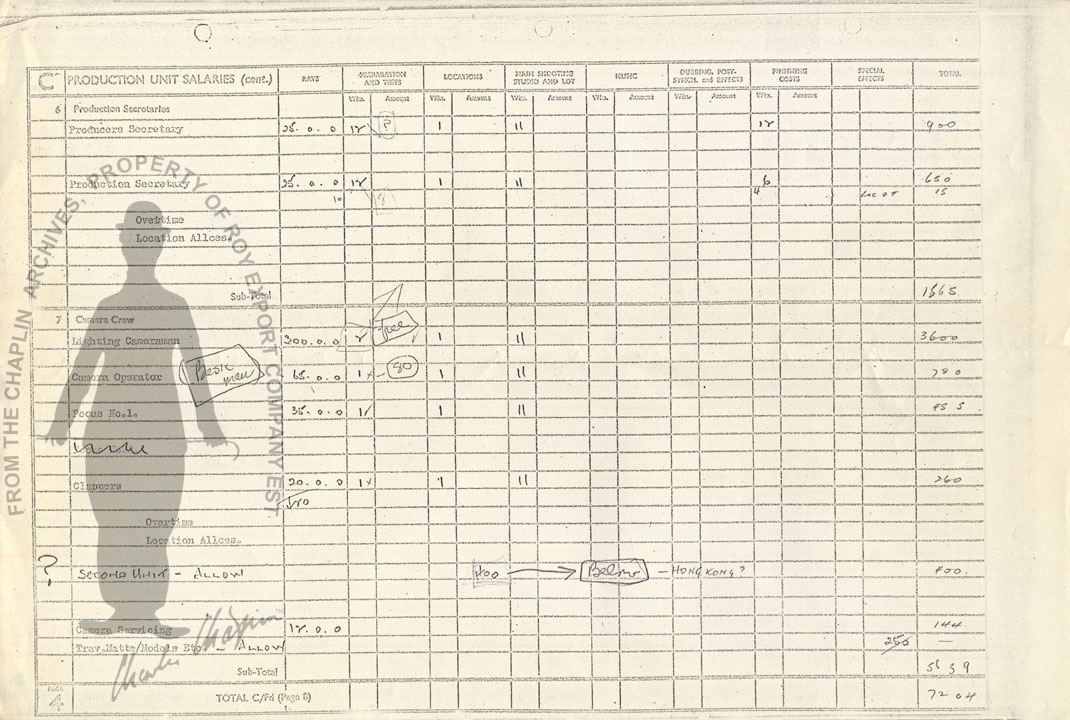 C PRODUCTION UNIT SALARIES (cont.) RATE PREPARATION AND TESTS LOCATIONS MAIN SHOOTING STUDIO AND LOT MUSIC DUBBING, POST-SYNCH. and EFFECTS FINISHING COSTS SPECIAL EFFECTS TOTAL
Wks. Amount Wks. Amount Wks. Amount Wks. Amount Wks. Amount Wks. Amount
6 Production Secretaries
Producers Secretary 25. 0. 0 12 ? 1 11 12 900
Production Secretary 25. 0. 0 12 1 11 6 650
10 4 LOC OT 15
Overtime
Location Allces.
Sub-Total 1565
7 Camera Crew
Lighting Cameraman 200. 0. 0 Free 1 11 3600
Camera Operator 65. 0. 0 1 80 1 11 780
Focus No.1. 35. 0. 0 1 1 11 455
Clappers 20. 0. 0 1 1 11 260
Overtime
Location Allces.
? SECOND UNIT - ALLOW 400 Below - HONG KONG? 400.
Camera Servicing 12. 0. 0 144
Trav.Matte/Models Etc. - ALLOW 250 —
Sub-Total 5639
PAGE 4 TOTAL C/Fd (Page 5) 7204
FROM THE CHAPLIN ARCHIVES, PROPERTY OF ROY EXPORT COMPANY EST
Charlie Chaplin